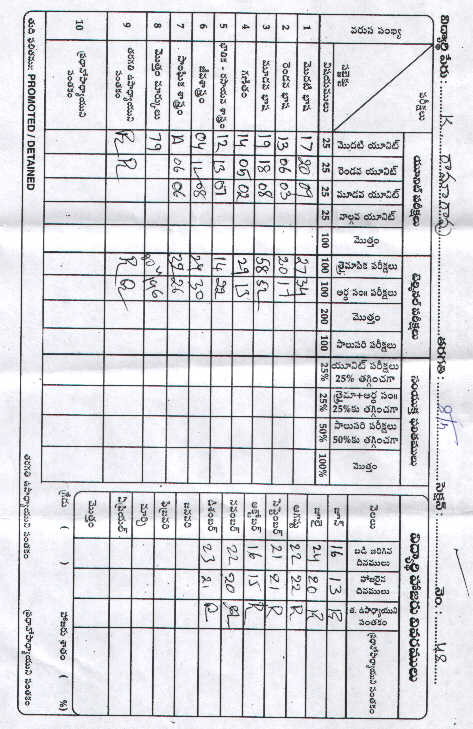 విద్యార్థి పేరు: K. రామారావు తరగతి: 8th సెక్షన్: నెం.: 48
వరుస సంఖ్య
పరీక్షలు
సబ్జెక్టు
యూనిట్ పరీక్షలు
టెర్మినల్ పరీక్షలు
సంయుక్త ఫలితములు
విషయములు
మొదటి యూనిట్
రెండవ యూనిట్
మూడవ యూనిట్
నాల్గవ యూనిట్
మొత్తం
త్రైమాసిక పరీక్షలు
అర్ధ సం॥ పరీక్షలు
మొత్తం
సాలుసరి పరీక్షలు
యూనిట్ పరీక్షలు 25% తగ్గించగా
త్రైమా+అర్ధ సం॥ 25%కు తగ్గించగా
సాలుసరి పరీక్షలు 50%కు తగ్గించగా
మొత్తం
25 25 25 25 100 100 100 200 100 25% 25% 50% 100%
1 మొదటి భాష 17 20 09 27 34
2 రెండవ భాష 13 06 03 20 17
3 మూడవ భాష 19 18 08 58
4 గణితం 14 05 02 29 13
5 భౌతిక - రసాయన శాస్త్రం 12 13 07 14
6 జీవశాస్త్రం 04 11 08 24 30
7 సాంఘిక శాస్త్రం A 06 06 29 26
8 మొత్తం మార్కులు 79
9 తరగతి ఉపాధ్యాయుని సంతకం
10 ప్రధానోపాధ్యాయుని సంతకం
తుది ఫలితము: PROMOTED / DETAINED
తరగతి ఉపాధ్యాయుని సంతకం
ప్రధానోపాధ్యాయుని సంతకం
విద్యార్థి హాజరు వివరములు
నెలలు
బడి జరిగిన దినములు
హాజరైన దినములు
త. ఉపాధ్యాయుని సంతకం
ప్రధానోపాధ్యాయుని సంతకం
జూన్ 16 13
జూలై 24 20
ఆగష్టు 22 22
సెప్టెంబర్ 21 21
అక్టోబర్ 16 15
నవంబర్ 22 20
డిశంబర్ 23 21
జనవరి
ఫిబ్రవరి
మార్చి
ఏప్రియల్
మొత్తం
గ్రేడు ( ) హాజరు శాతం ( %)